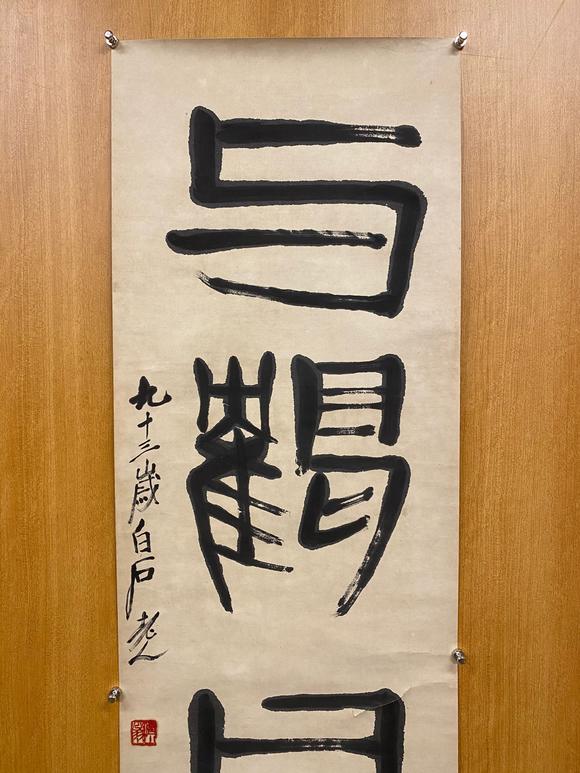 与鶴同
九十三歲白石老人